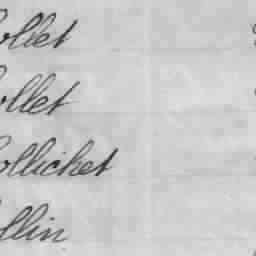 ollet
ollet
ollichet
ollin